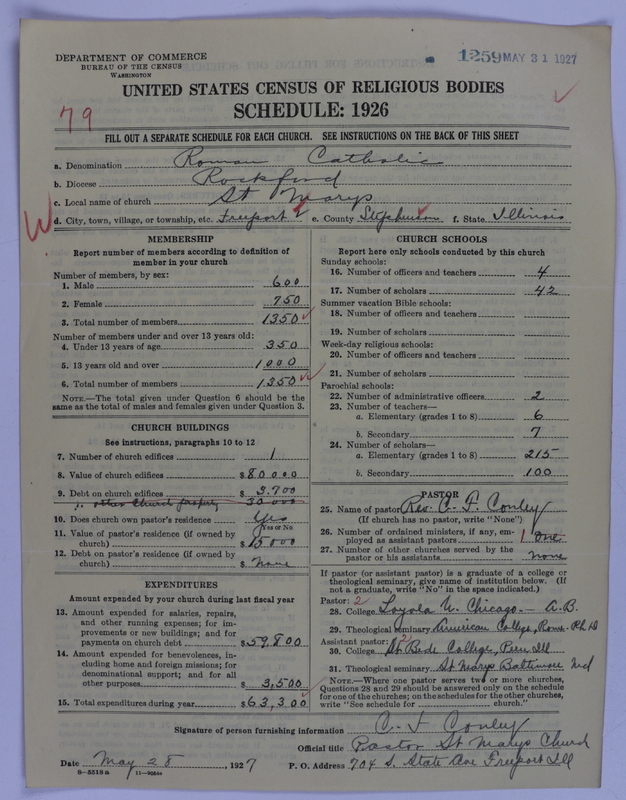 DEPARTMENT OF COMMERCE
BUREAU OF THE CENSUS
WASHINGTON
1259 MAY 31 1927
UNITED STATES CENSUS OF RELIGIOUS BODIES
SCHEDULE: 1926
79
FILL OUT A SEPARATE SCHEDULE FOR EACH CHURCH. SEE INSTRUCTIONS ON THE BACK OF THIS SHEET
a. Denomination Roman Catholic
b. Diocese Rockford
c. Local name of church St Marys
W
d. City, town, village, or township, etc. Freeport e. County Stephenson f. State Illinois
MEMBERSHIP
Report number of members according to definition of
member in your church
Number of members, by sex:
1. Male 600
2. Female 750
3. Total number of members 1350
Number of members under and over 13 years old:
4. Under 13 years of age 350
5. 13 years old and over 1000
6. Total number of members 1350
NOTE.—The total given under Question 6 should be
same as the total of males and females given under Question 3.
CHURCH BUILDINGS
See instructions, paragraphs 10 to 12
7. Number of church edifices 1
8. Value of church edifices $80000
9. Debt on church edifices $3.700
" other church property 30 000
10. Does church own pastor's residence Yes
Yes or No
11. Value of pastor's residence (if owned by
church) $15000
12. Debt on pastor's residence (if owned by
church) $None
EXPENDITURES
Amount expended by your church during last fiscal year
13. Amount expended for salaries, repairs,
and other running expenses; for im-
provements or new buildings; and for
payments on church debt $59,800
14. Amount expended for benevolences, in-
cluding home and foreign missions; for
denominational support; and for all
other purposes 3,500
15. Total expenditures during year $63,300
CHURCH SCHOOLS
Report here only schools conducted by this church
Sunday schools:
16. Number of officers and teachers 4
17. Number of scholars 42
Summer vacation Bible schools:
18. Number of officers and teachers
19. Number of scholars
Week-day religious schools:
20. Number of officers and teachers
21. Number of scholars
Parochial schools:
22. Number of administrative officers 2
23. Number of teachers—
a. Elementary (grades 1 to 8) 6
b. Secondary 7
24. Number of scholars—
a. Elementary (grades 1 to 8) 215
b. Secondary 100
PASTOR
25. Name of pastor Rev. C. F. Conley
(If church has no pastor, write "None")
26. Number of ordained ministers, if any, em-
ployed as assistant pastors 1 one
27. Number of other churches served by the
pastor or his assistants none
If pastor (or assistant pastor) is a graduate of a college or
theological seminary, give name of institution below. (If
not a graduate, write "No" in the space indicated.)
Pastor: 2
28. College Loyola U. Chicago — A.B.
29. Theological seminary American College, Rome. Ph D
Assistant pastor: 2
30. College St Bede College, Peru Ill
31. Theological seminary St Marys Baltimore Md
NOTE.—Where one pastor serves two or more churches,
Questions 28 and 29 should be answered only on the schedule
for one of the churches; on the schedules for the other churches,
write "See schedule for church."
Signature of person furnishing information C. F. Conley
Official title Pastor St Marys Church
Date May 28, 1927 P. O. Address 704 S. State Ave Freeport Ill
8—5518a